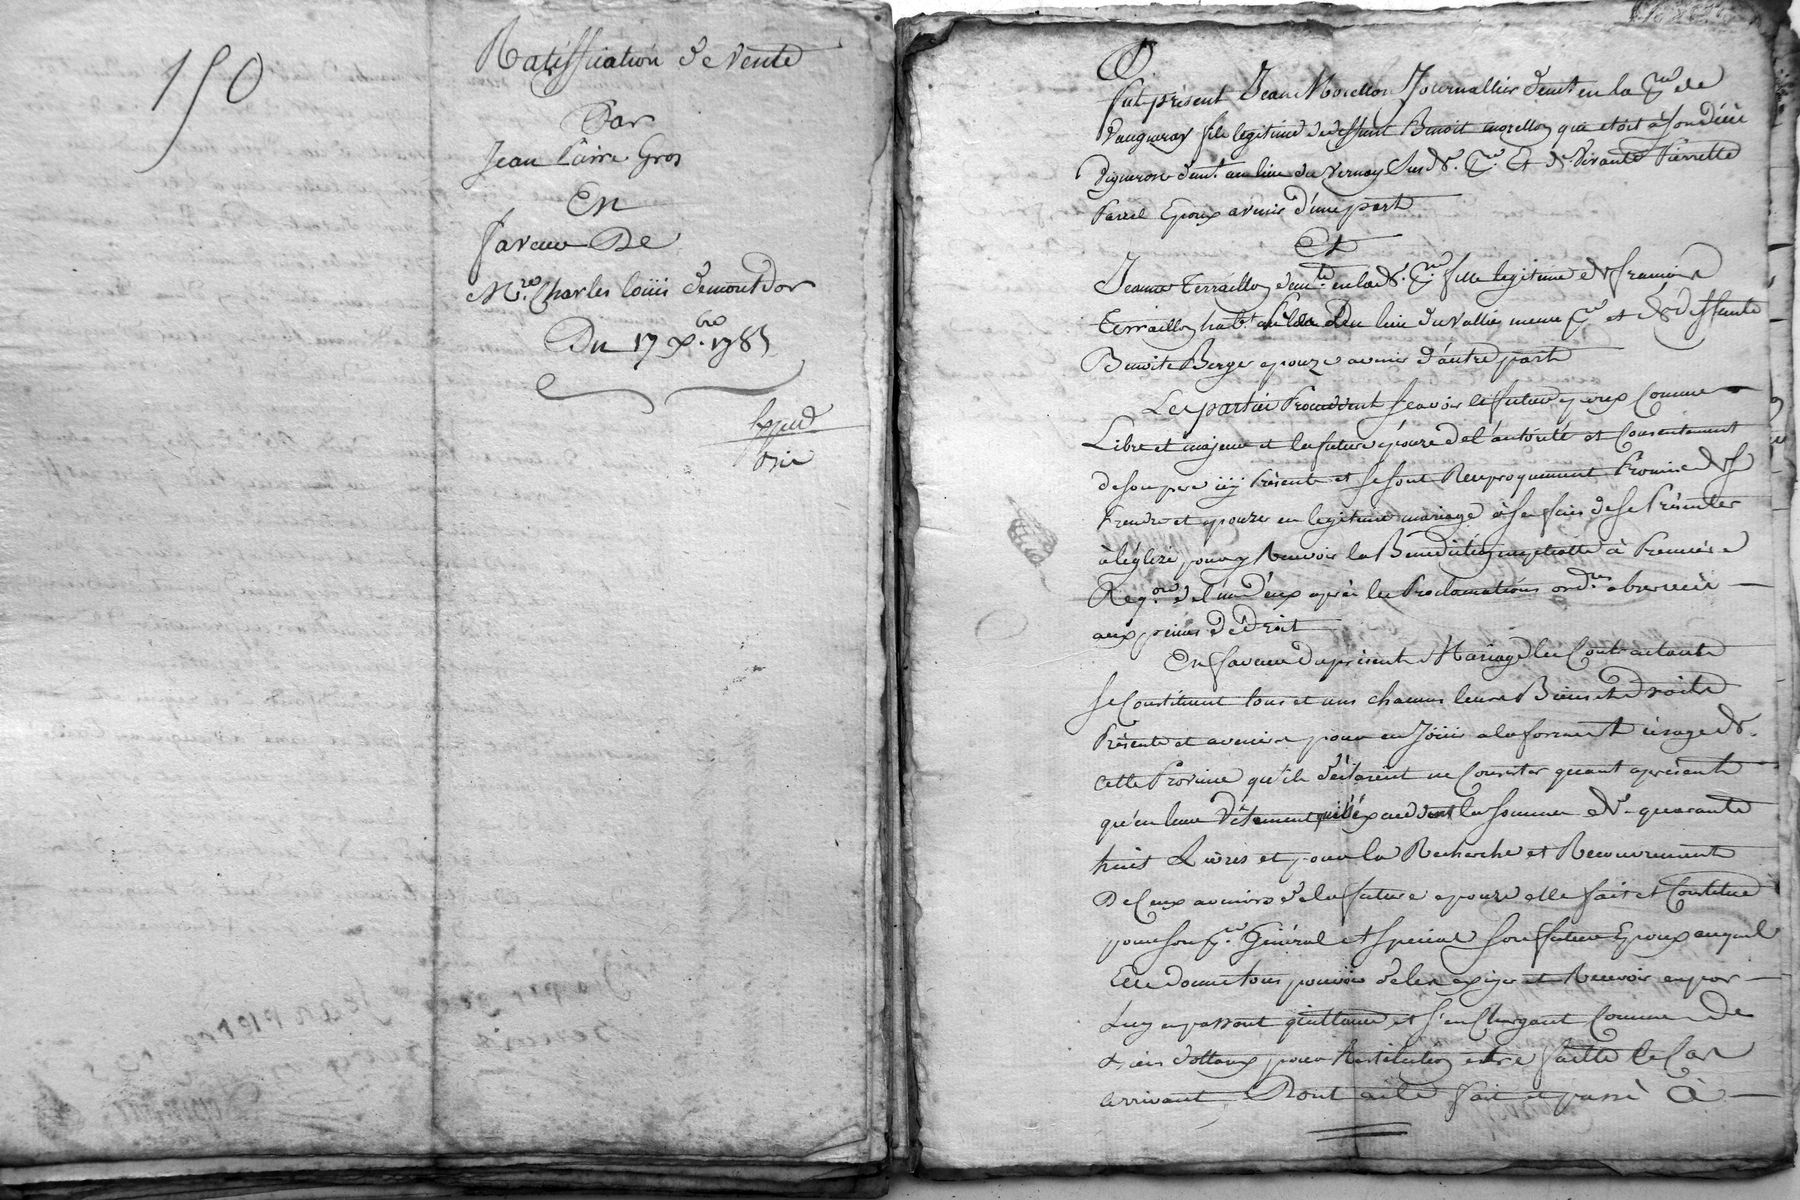 150
Ratiffication de vente
Par
Jean Pierre Gros
En
faveur De
Mre. Charles louis demontdor
Du 17 Xbre. 1785
Exped
Fut présent Jean Morellon Journallier demt. en la pse de
Vaugneray fils legitime de deffunt Benoit morellon qui etoit à son déces
vigneron demt. au lieu du Vernay susd. pse. Et de vivante Pierrette
Epoux avenir d'une part
Et
Jeanne Terraillon demte. en lad. pse. fille legitime de françois
Terraillon habt. au lieu du Vallier meme pse et de deffunte
Benoite Berger epouze avenir d'autre part
Les parties Procedent sçavoir le futur epoux Comme
Libre et majeur et la future epouze de l'autorité et Consentement
de son pere icy Présent et se sont Reciproquement Promis de se
Prendre et epouzer en legitime mariage à ses fins de se Présenter
à l'églize pour y Recevoir la Bénédiction nuptialle à Premiere
Reqon. de l'un d'eux après les Proclamations ordres. observées
aux peines de droit
En faveur du présent Mariage les Contractants
se Constituent tous et uns chacuns leurs Biens et Droits
Présents et avenirs pour en Joüir a la forme et usage de
cette Province qu'ils déclarent ne Consister quant aprésent
qu'en leurs vêtements qui n'éxcedent la somme de quarante
huit Livres et pour la Recherche et Recouvrement
De Ceux avenirs de la future epouze elle fait et Constitue
pour son pr. Général et special son futur Epoux auquel
Elle donne tous pouvoir de les exiger et Recevoir en par
Luy en passant quittance et s'en Chargant Comme De
Biens dottaux pour Restitution etre faitte le Cas
arrivant Dont acte fait et passé à